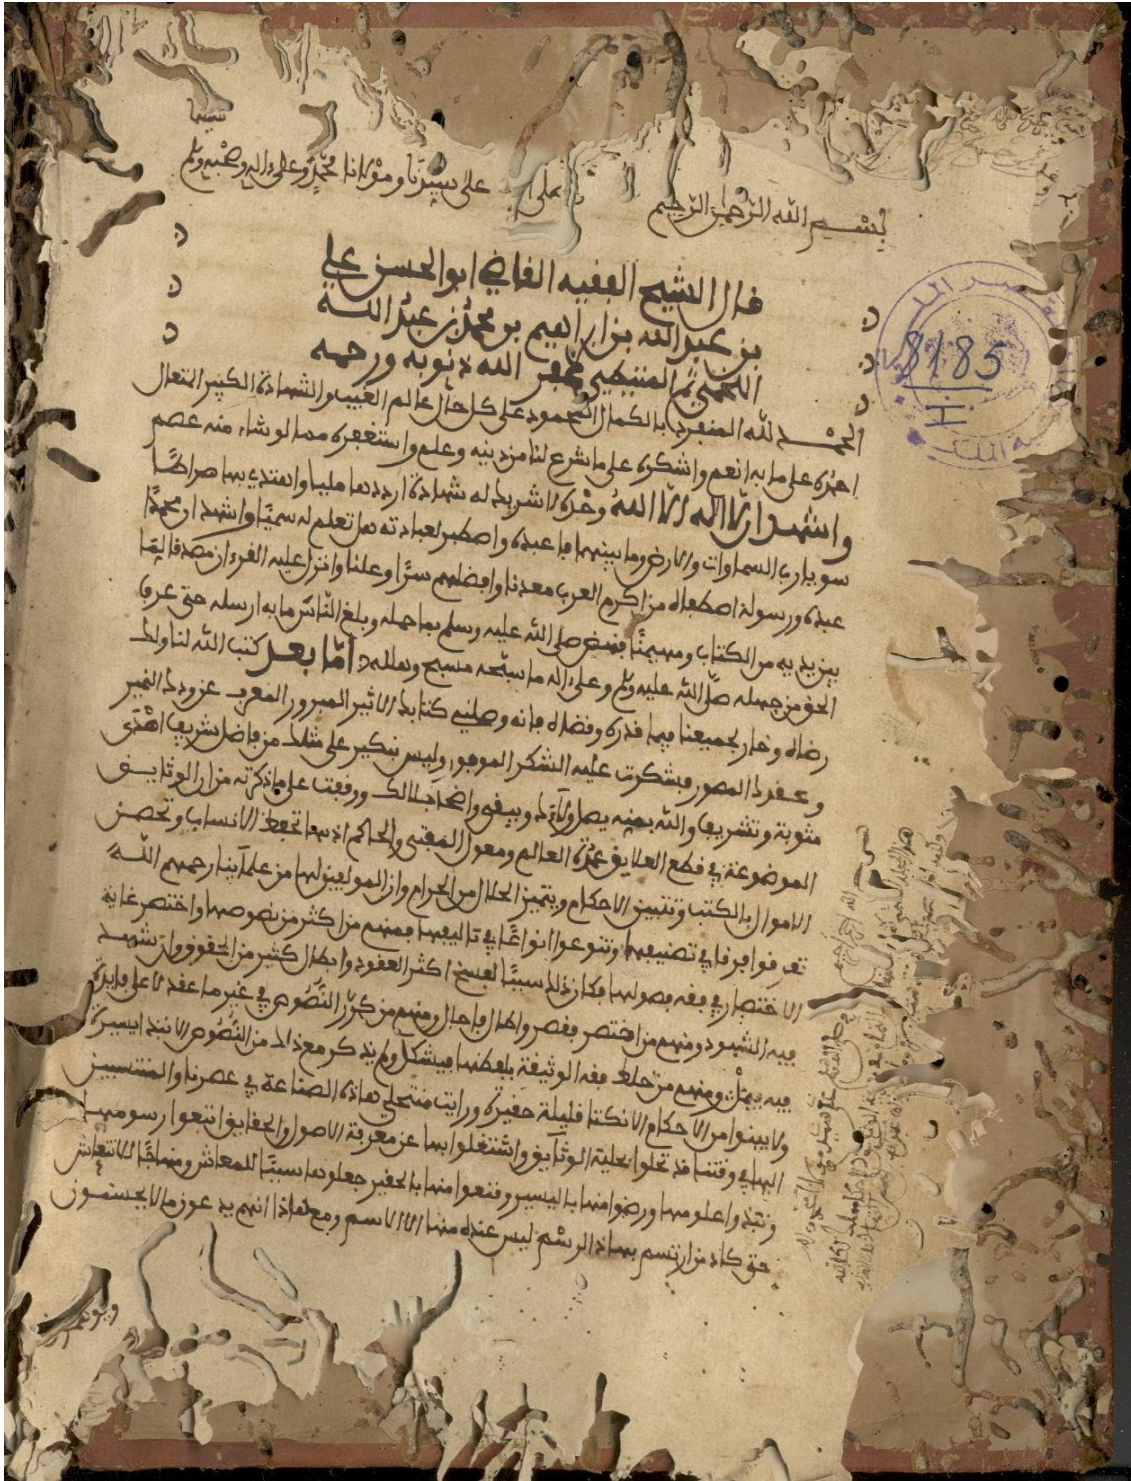 بسم الله الرحمن الرحيم صلى الله على سيدنا ومولانا محمد وعلى ءاله وصحبه وسلم تسليما
قال الشيخ الفقيه القاضي ابو الحسن علي
بن عبد الله بن ابراهيم بن محمد بن عبد الله
اللخمي ثم المتيطي غفر الله ذنوبه ورحمه
الحمد لله المنفرد بالكمال المحمود على كل حال عالم الغيب والشهادة الكبير المتعال
احمده على ما به انعم واشكره على ما شرع لنا من دينه وعلم واستغفره مما لو شاء منه عصم
واشهد ان لا اله الا الله وحده لا شريك له شهادة ارددها مليا واهتدي بها صراطا
سويا رب السماوات والارض وما بينهما فاعبده واصطبر لعبادته هل تعلم له سميا واشهد ان محمدا
عبده ورسوله اصطفاه من اكرم العرب معدنا وافضلهم سرا وعلنا وانزل عليه القرءان مصدقا لما
بين يديه من الكتاب ومهيمنا فنهض صلى الله عليه وسلم بما حمله وبلغ الناس ما به ارسله حتى عرف
الحق من جهله صلى الله عليه وسلم وعلى ءاله ما سبحه مسبح وهلله اما بعد كتب الله لنا ولك
رضاه وخار لجميعنا فيما قدره وقضاه فانه وصلني كتابك الاثير المبرور المعرب عن ودك النمير
وعقدك المصور فشكرت عليه الشكر الموفور وليس بنكير على مثلك من فاضل شريف اهدى
مثوبة وتشريف والله بمنه يصل ولاءك ويبقي واضحا جلالك ووقفت على ما ذكرته من ان الوثايق
الموضوعة في قطع العلايق عمدة العالم ومعول المفتي والحاكم اذ بها تحفظ الانساب وتحصن
الاموال بالكتب وتتبين الاحكام ويتميز الحلال من الحرام وان المولفين لها من علمآينا رحمهم الله
تفرقوا فرقا في تصنيفها وتنوعوا انواعا في تاليفها فمنهم من اكثر من نصوصها واختصر غاية
الاختصار في فقه فصولها فكان ذلك سببا لفسخ اكثر العقود وابطال كثير من الحقوق وان شهد
فيه الشهود ومنهم من اختصر فقصر واطال فاحال ومنهم من كرر النصوص في غير ما عقد لا على فايدة
فيه يمثل ومنهم من خلط فقه الوثيقة بلفظها فيشكل ولم يذكر مع ذلك من النصوص الا نبذا يسيرة
ولا يبنوا من الاحكام الا نكتا قليلة حقيرة ورايت منتحلي هاذه الصناعة في عصرنا والمنتسبين
اليها في وقتنا قد تحلوا بحلية الوثآيق واشتغلوا بها عن معرفة الاصول والحقايق اتبعوا رسومها
ونبذوا علومها ورضوا منها باليسير وقنعوا منها بالحقير جعلوها سببا للمعاش ومنهاجا للانتعاش
حتى كاد من ارتسم بهذا الرسم ليس عنده منها الا الاسم ومع هاذا انهم يدعون ما لا يحسنون
8185
H